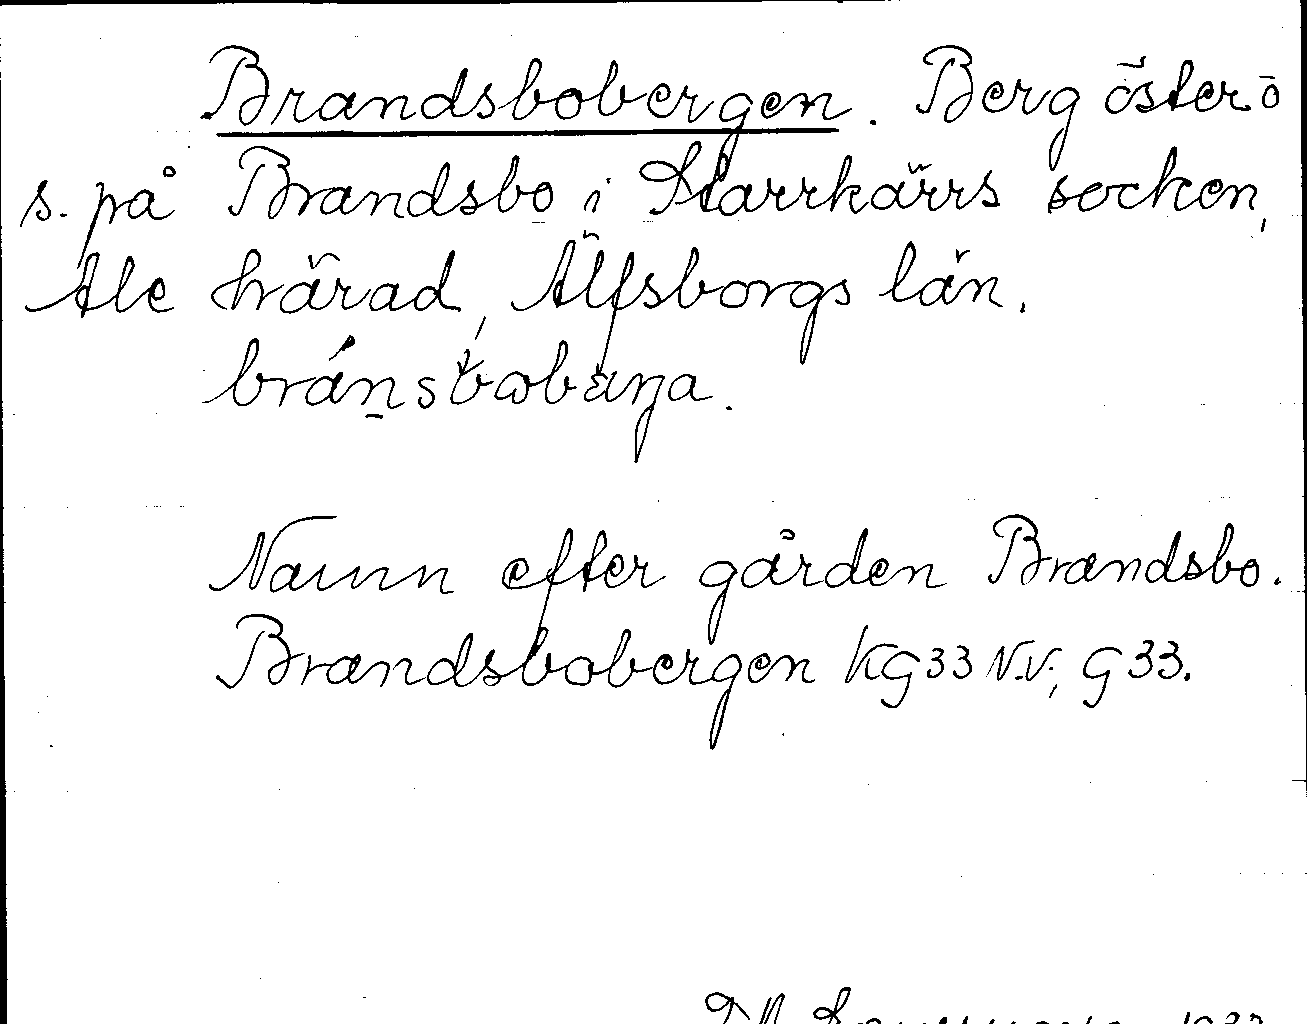 Brandsbobergen. Berg öster ō
s. på Brandsbo i Starrkärrs socken,
Ale härad, Älfsborgs län.
Namn efter gården Brandsbo.
Brandsbobergen KG33 N.V; G33.